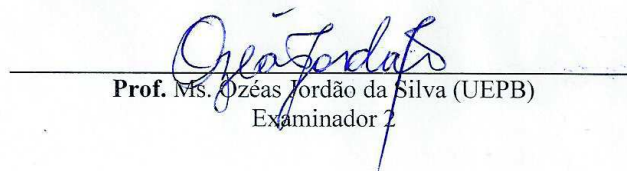 Ozéas Jordão
Prof. Ms. Ozéas Jordão da Silva (UEPB)
Examinador 2